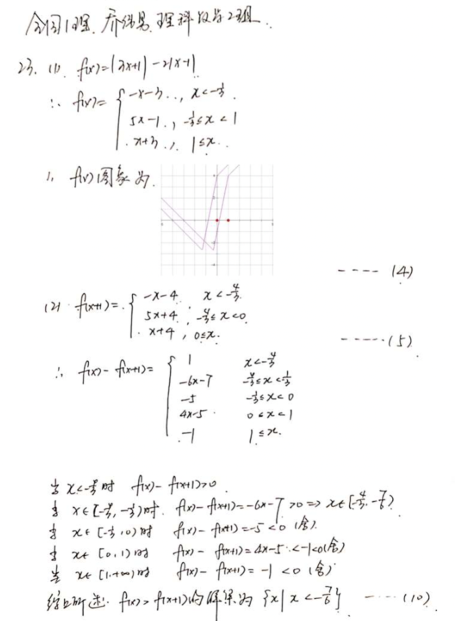 全国1理 乔锦易 理科数学2组
23. (1) f(x)=|3x+1|-2|x-1|
∴ f(x)= { -x-3, x<-1/3
5x-1, -1/3≤x<1
x+3, 1≤x
∴ f(x)图象为
---- (4)
(2) f(x+1)= { -x-4, x<-4/3
5x+4, -4/3≤x<0
x+4, 0≤x
----- (5)
∴ f(x)-f(x+1)= { 1 x<-4/3
-6x-7 -4/3≤x<-1/3
-5 -1/3≤x<0
4x-5 0≤x<1
-1 1≤x
当 x<-4/3时 f(x)-f(x+1)>0
当 x∈[-4/3,-1/3)时, f(x)-f(x+1)=-6x-7>0 => x∈[-4/3,-7/6)
当 x∈[-1/3,0)时 f(x)-f(x+1)=-5<0 (舍)
当 x∈[0,1)时 f(x)-f(x+1)=4x-5<-1<0(舍)
当 x∈[1,+∞)时 f(x)-f(x+1)=-1<0 (舍)
综上所述: f(x)>f(x+1)的解集为 {x|x<-7/6} ---- (10)